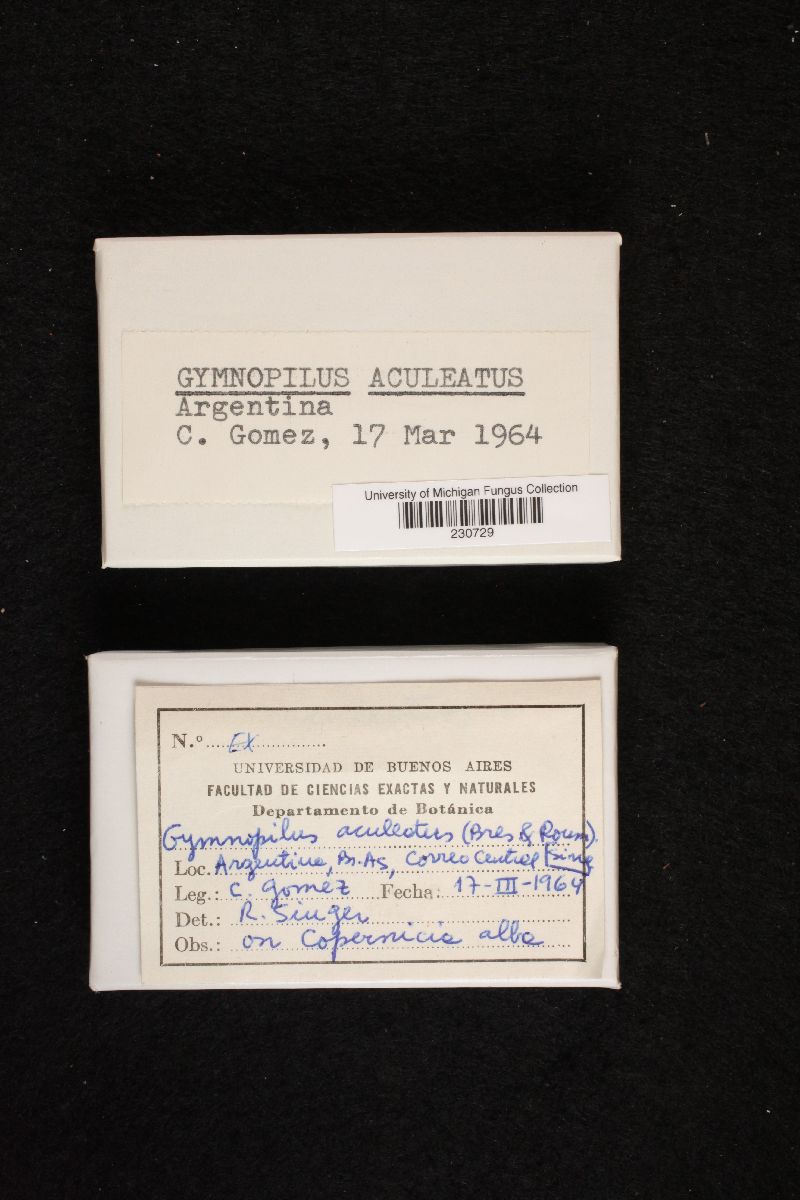 GYMNOPILUS ACULEATUS
Argentina
C. Gomez, 17 Mar 1964
University of Michigan Fungus Collection
230729
N.º Ex
UNIVERSIDAD DE BUENOS AIRES
FACULTAD DE CIENCIAS EXACTAS Y NATURALES
Departamento de Botánica
Gymnopilus aculeatus (Bres & Roum).
Sing
Loc. Argentina, Bs. As, Correo Central
Leg.: C. Gomez Fecha: 17-III-1964
Det.: R. Singer
Obs.: on Copernicia alba